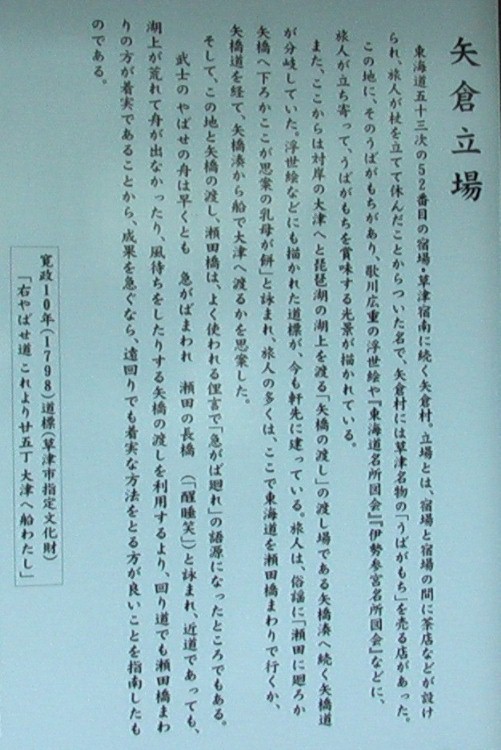 矢倉立場
東海道五十三次の52番目の宿場・草津宿南に続く矢倉村。立場とは、宿場と宿場の間に茶店などが設け
られ、旅人が杖を立てて休んだことからついた名で、矢倉村には草津名物の「うばがもち」を売る店があった。
この地に、そのうばがもちがあり、歌川広重の浮世絵や『東海道名所図会』『伊勢参宮名所図会』などに、
旅人が立ち寄って、うばがもちを賞味する光景が描かれている。
また、ここからは対岸の大津へと琵琶湖の湖上を渡る「矢橋の渡し」の渡し場である矢橋湊へ続く矢橋道
が分岐していた。浮世絵などにも描かれた道標が、今も軒先に建っている。旅人は、俗謡に「瀬田に廻ろか
矢橋へ下ろかここが思案の乳母が餅」と詠まれ、旅人の多くは、ここで東海道を瀬田橋まわりで行くか、
矢橋道を経て、矢橋湊から船で大津へ渡るかを思案した。
そして、この地と矢橋の渡し、瀬田橋は、よく使われる俚言で「急がば廻れ」の語源になったところでもある。
武士の やばせの舟は早くとも 急がばまわれ 瀬田の長橋 （「醒睡笑」）と詠まれ、近道であっても、
湖上が荒れて舟が出なかったり、風待ちをしたりする矢橋の渡しを利用するより、回り道でも瀬田橋まわ
りの方が着実であることから、成果を急ぐなら、遠回りでも着実な方法をとる方が良いことを指南したも
のである。
寛政10年(1798)道標(草津市指定文化財)
「右やばせ道 これより廿五丁 大津へ船わたし」